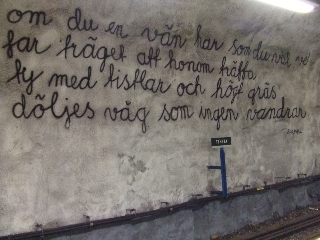 om du en vän har som du väl vet
far träget att honom träffa
ty med tistlar och högt gräs
döljes väg som ingen vandrar